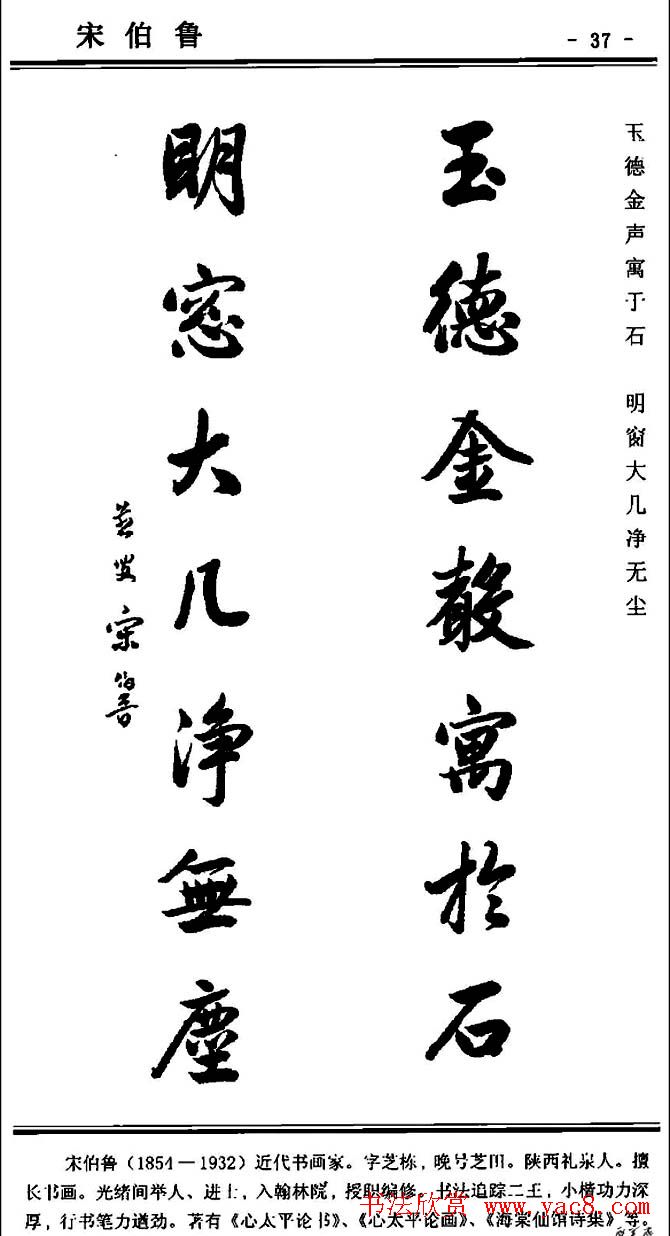 宋伯鲁
- 37 -
玉德金声寓于石 明窗大几净无尘
玉德金聲寓於石
明窓大几淨無塵
芝叟宋伯鲁
宋伯鲁(1854—1932)近代书画家。字芝栋,晚号芝田。陕西礼泉人。擅
长书画。光绪间举人、进士,入翰林院,授职编修。书法追踪二王,小楷功力深
厚,行书笔力遒劲。著有《心太平论书》、《心太平论画》、《海棠仙馆诗集》等。
书法欣赏 www.yac8.com